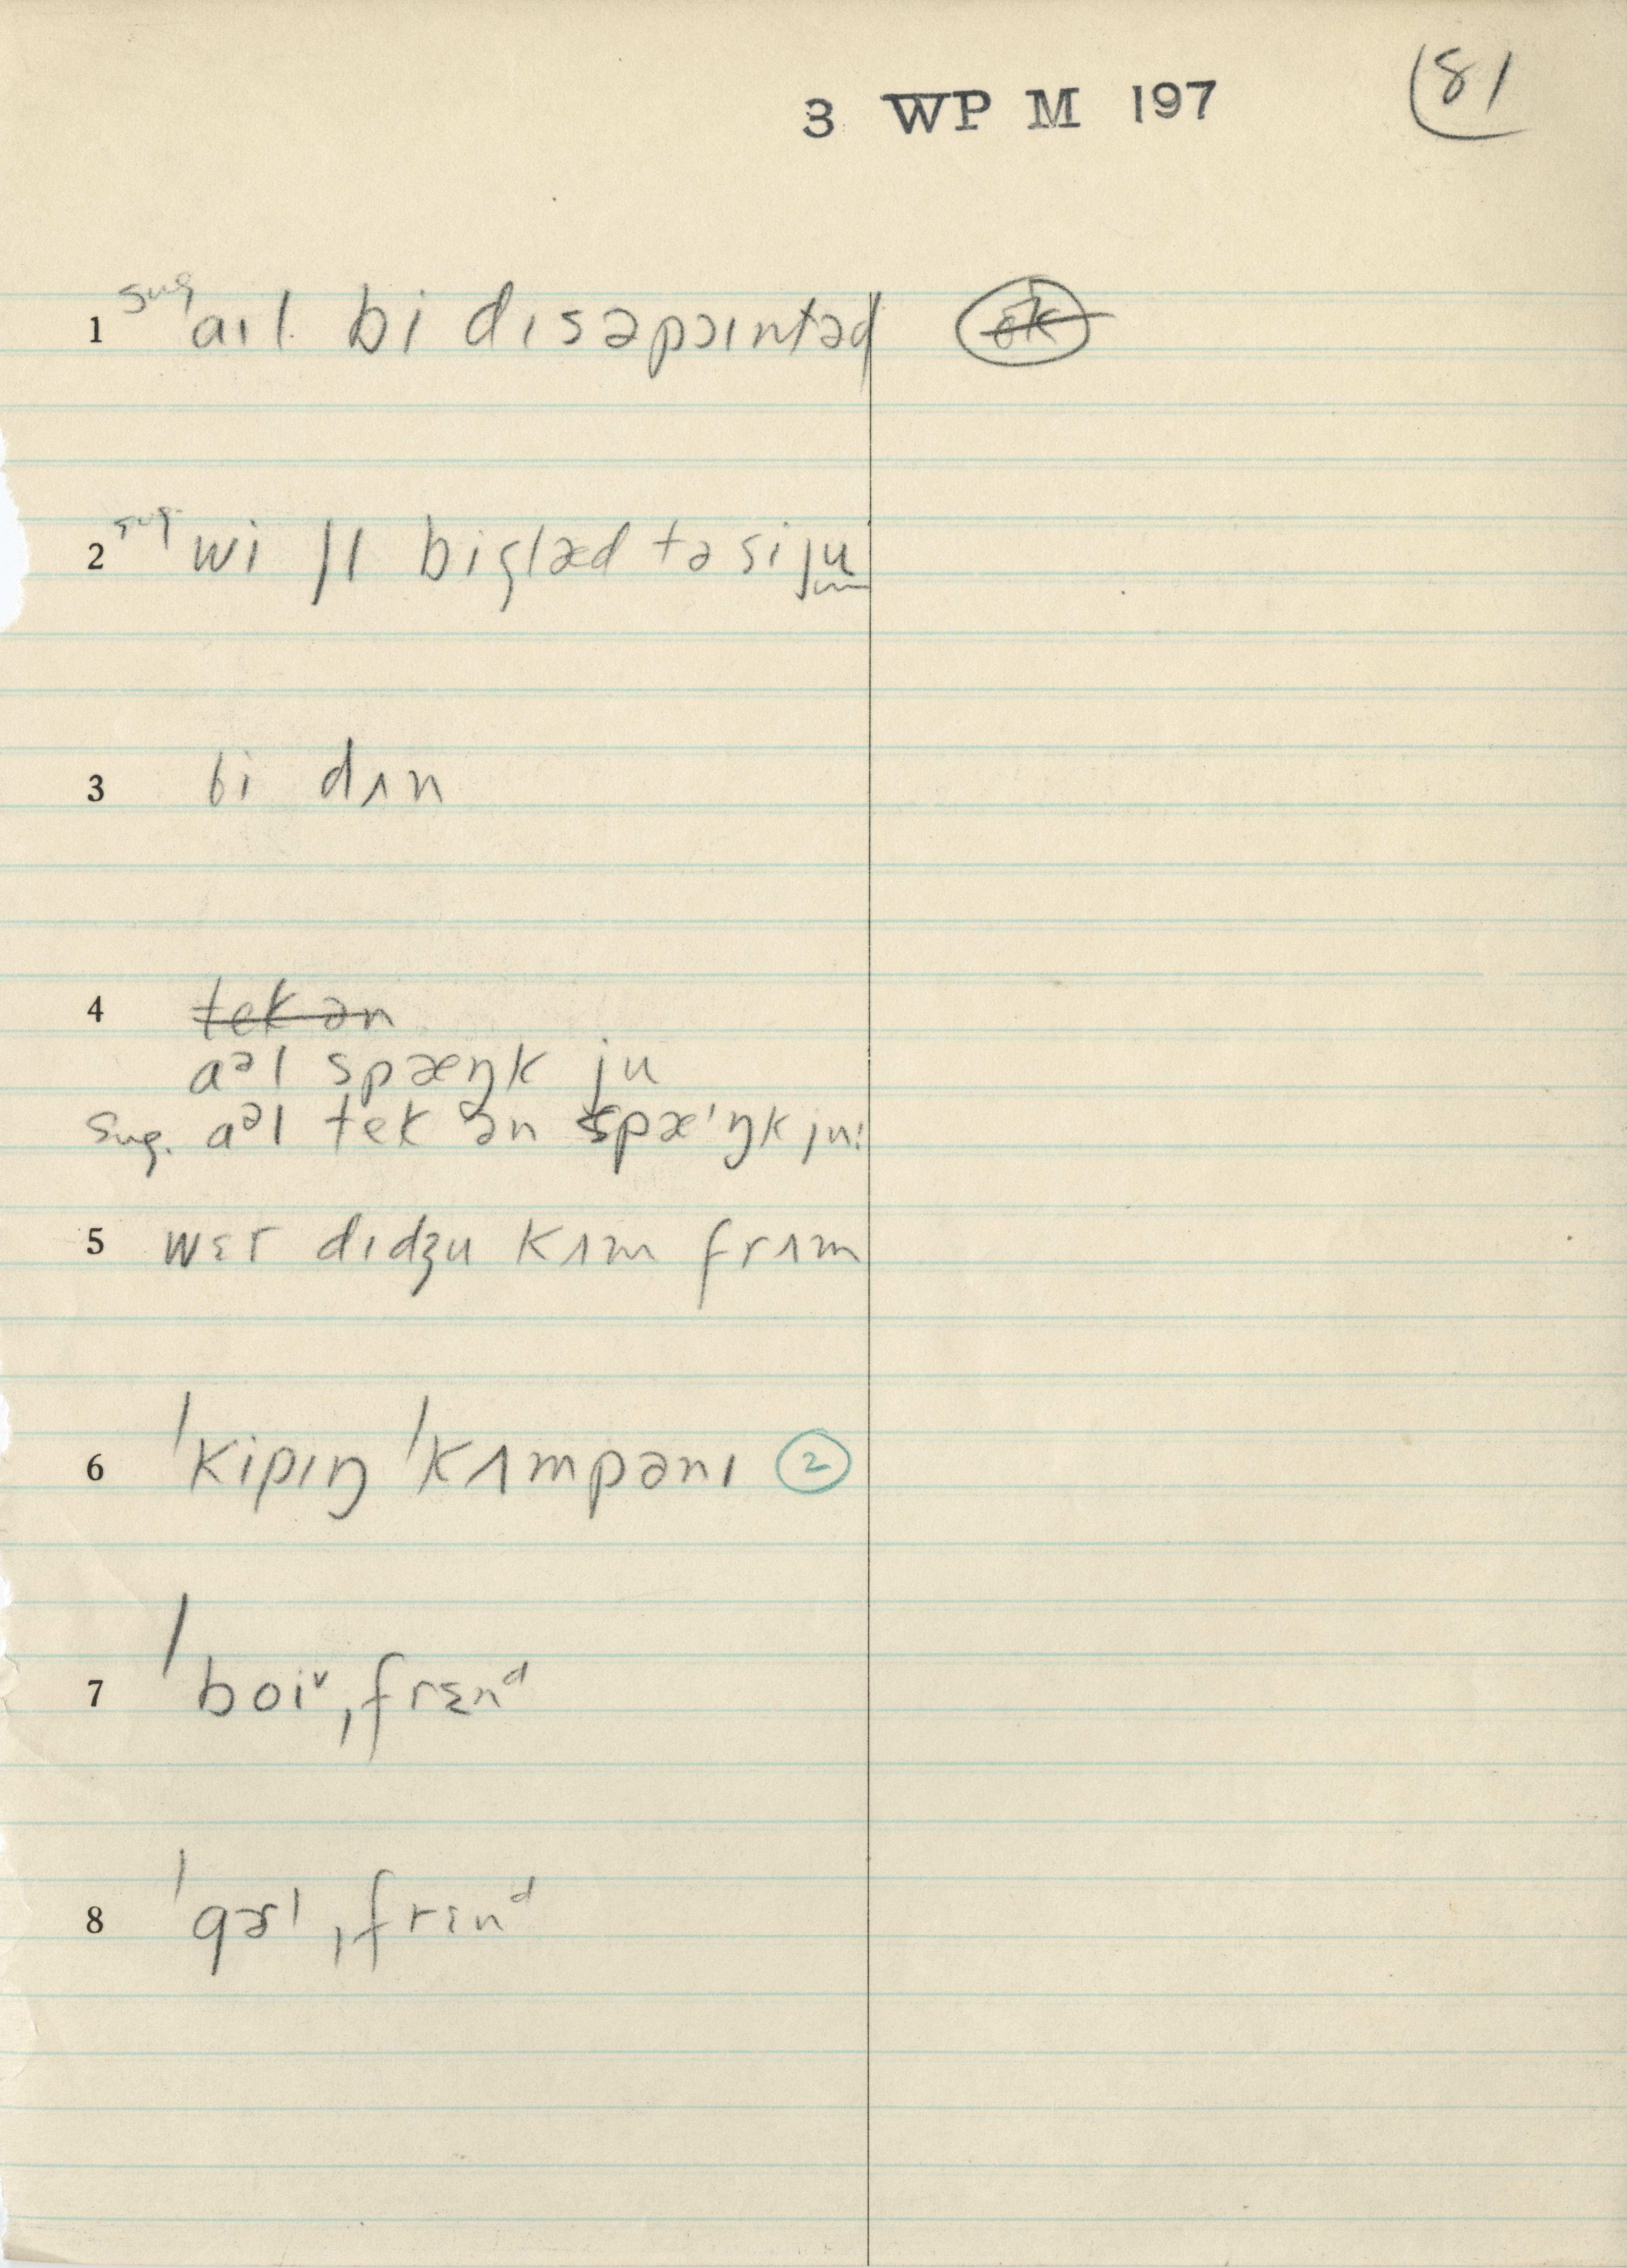 3 WP M 197 81
1 sug aɪl bi dɪsəpɔɪntəd ok
2 sug. wi ʃl bi glæd tə si ju
3 bi dʌn
4 tek ən
aᵊl spæŋk ju
sug. aᵊl tek ən spæ'ŋk ju!
5 wɛr dɪdʒu kʌm frʌm
6 'kipɪŋ 'kʌmpənɪ 2
7 'boiᵛ ˌfrɛnᵈ
8 'gɚl ˌfrɛnᵈ